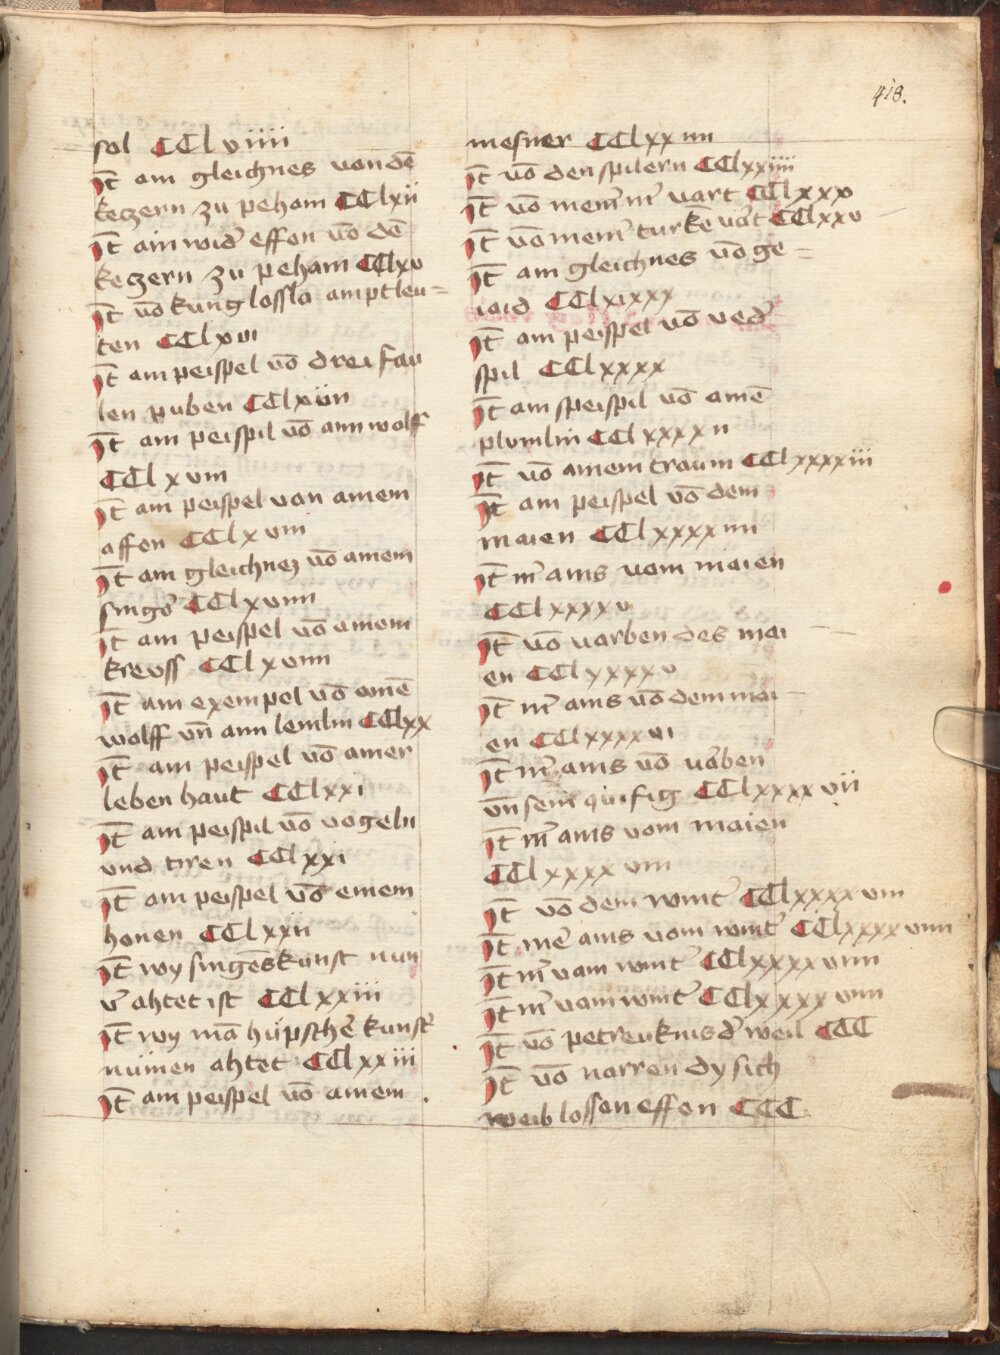 418.
sol CCl viiii
It ain gleichnes von dē
keczern zu peham CCl xii
It ain wid' effen vō dē
keczern zu peham CCl xv
It vō kung lossla amptleu=
ten CCl xvi
It ain peispel vō drei fau
len puben CCl xviii
It ain peispil vō ainn wolff
CCl xviii
It ain peispel von ainem
affen CCl xviii
It ain gleichnez vō ainem
singer CCl xviiii
It ain peispel vō ainem
kreuss CCl xviiii
It ain exempel vō ainē
wolff vn̄ ainn lemlin CCl xx
It ain peispel vō ainer
leben haut CCl xxi
It ain peispil vō vogeln
vnd tiren CCl xxi
It ain peispel vō einem
honen CCl xxii
It wy singēs kunst nun
v' ahtet ist CCl xxiii
It wy mā hüpsche kunst
nümen ahtet CCl xxiii
It ain peispel vō ainem
mesner CCl xx iiii
It vō den spilern CCl xxiiii
It vō meinr m' vart CCl xxv
It vō meinr turkē vart CCl xxv
It ain gleichnes vō ge=
iaid CCl xixxx
It ain peispel vō ved'
spil CCl xxxx
It ain speispil vō ainē
plümlin CCl xxxx ii
It vō ainem traum CCl xxxxiii
It ain peispel vō dem
maien CCl xxxx iiii
It m' ains vom maien
CCl xxxx v
It vō varben des mai
en CCl xxxx v
It m' ains vō dem mai
en CCl xxxx vi
It m' ains vō varben
vn̄ sein' CCl xxxx vii
It m' ains vom maien
CCl xxxx viii
It vō dem wint' CCl xxxx viii
It me' ains vom wint' CCl xxxx viiii
It m' vam wint' CCl xxxx viiii
It m' vam wint' CCl xxxx viiii
It vō petreuknis d' weil CCC
It vō narren dy sich
weib lossen effen CCC